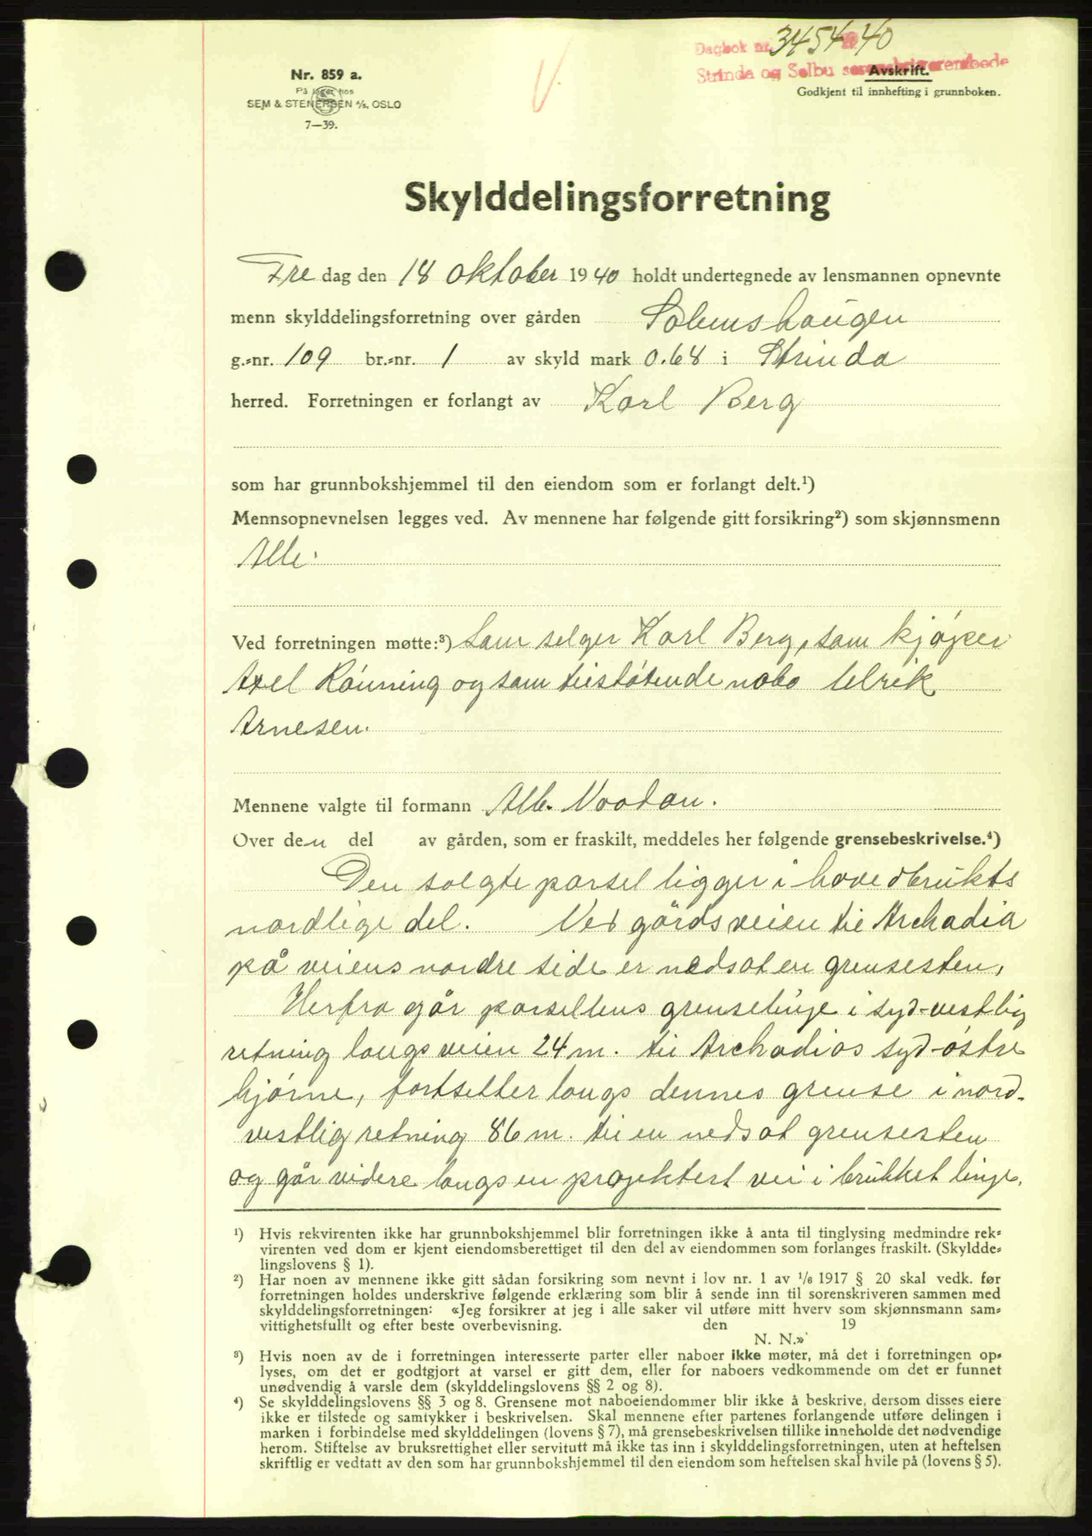 Dagbok nr. 3454 1940
Strinda og Selbu sorenskriverembede
Nr. 859 a.
På lager hos
SEM & STENERSEN A/S, OSLO
7—39.
Avskrift.
Godkjent til innhefting i grunnboken.
Skylddelingsforretning
Fredag den 18 oktober 1940 holdt undertegnede av lensmannen opnevnte
menn skylddelingsforretning over gården Solemshaugen
g.-nr. 109 br.-nr. 1 av skyld mark 0.68 i Strinda
herred. Forretningen er forlangt av Karl Berg
som har grunnbokshjemmel til den eiendom som er forlangt delt.¹)
Mennsopnevnelsen legges ved. Av mennene har følgende gitt forsikring²) som skjønnsmenn
Alle.
Ved forretningen møtte:³) Som selger Karl Berg, som kjøper
Axel Rönning og som tilstøtende nabo Ulrik
Arnesen.
Mennene valgte til formann Alb.
Over den del av gården, som er fraskilt, meddeles her følgende grensebeskrivelse.⁴)
Den solgte parsel ligger i hovedbrukts
nordlige del. Ved gårdsveien til Archadia
på veiens nordre side er nedsat en grensesten,
Herfra går parsellens grenselinje i syd-vestlig
retning langs veien 24 m. til Archadias syd-østre
hjørne, fortsetter langs dennes grense i nord-
vestlig retning 86 m. til en nedsat grensesten
og går videre langs en projektert vei i brukket linje,
¹) Hvis rekvirenten ikke har grunnbokshjemmel blir forretningen ikke å anta til tinglysing medmindre rek-
virenten ved dom er kjent eiendomsberettiget til den del av eiendommen som forlanges fraskilt. (Skyldde-
lingslovens § 1).
²) Har noen av mennene ikke gitt sådan forsikring som nevnt i lov nr. 1 av 1/6 1917 § 20 skal vedk. før
forretningen holdes underskrive følgende erklæring som blir å sende inn til sorenskriveren sammen med
skylddelingsforretningen: «Jeg forsikrer at jeg i alle saker vil utføre mitt hverv som skjønnsmann sam-
vittighetsfullt og efter beste overbevisning. den 19
N. N.»
³) Hvis noen av de i forretningen interesserte parter eller naboer ikke møter, må det i forretningen op-
lyses, om det er godtgjort at varsel er gitt dem, eller for naboers vedkommende om det er funnet
unødvendig å varsle dem (skylddelingslovens §§ 2 og 8).
⁴) Se skylddelingslovens §§ 3 og 8. Grensene mot naboeiendommer blir ikke å beskrive, dersom disses eiere
ikke er tilstede og samtykker i beskrivelsen. Skal mennene efter partenes forlangende utføre delingen i
marken i forbindelse med skylddelingen (lovens § 7), må grensebeskrivelsen tillike inneholde det nødvendige
herom. Stiftelse av bruksrettighet eller servitutt må ikke tas inn i skylddelingsforretningen, uten at heftelsen
skriftlig er vedtatt av den som har grunnbokshjemmel til den eiendom som heftelsen skal hvile på (lovens § 5).